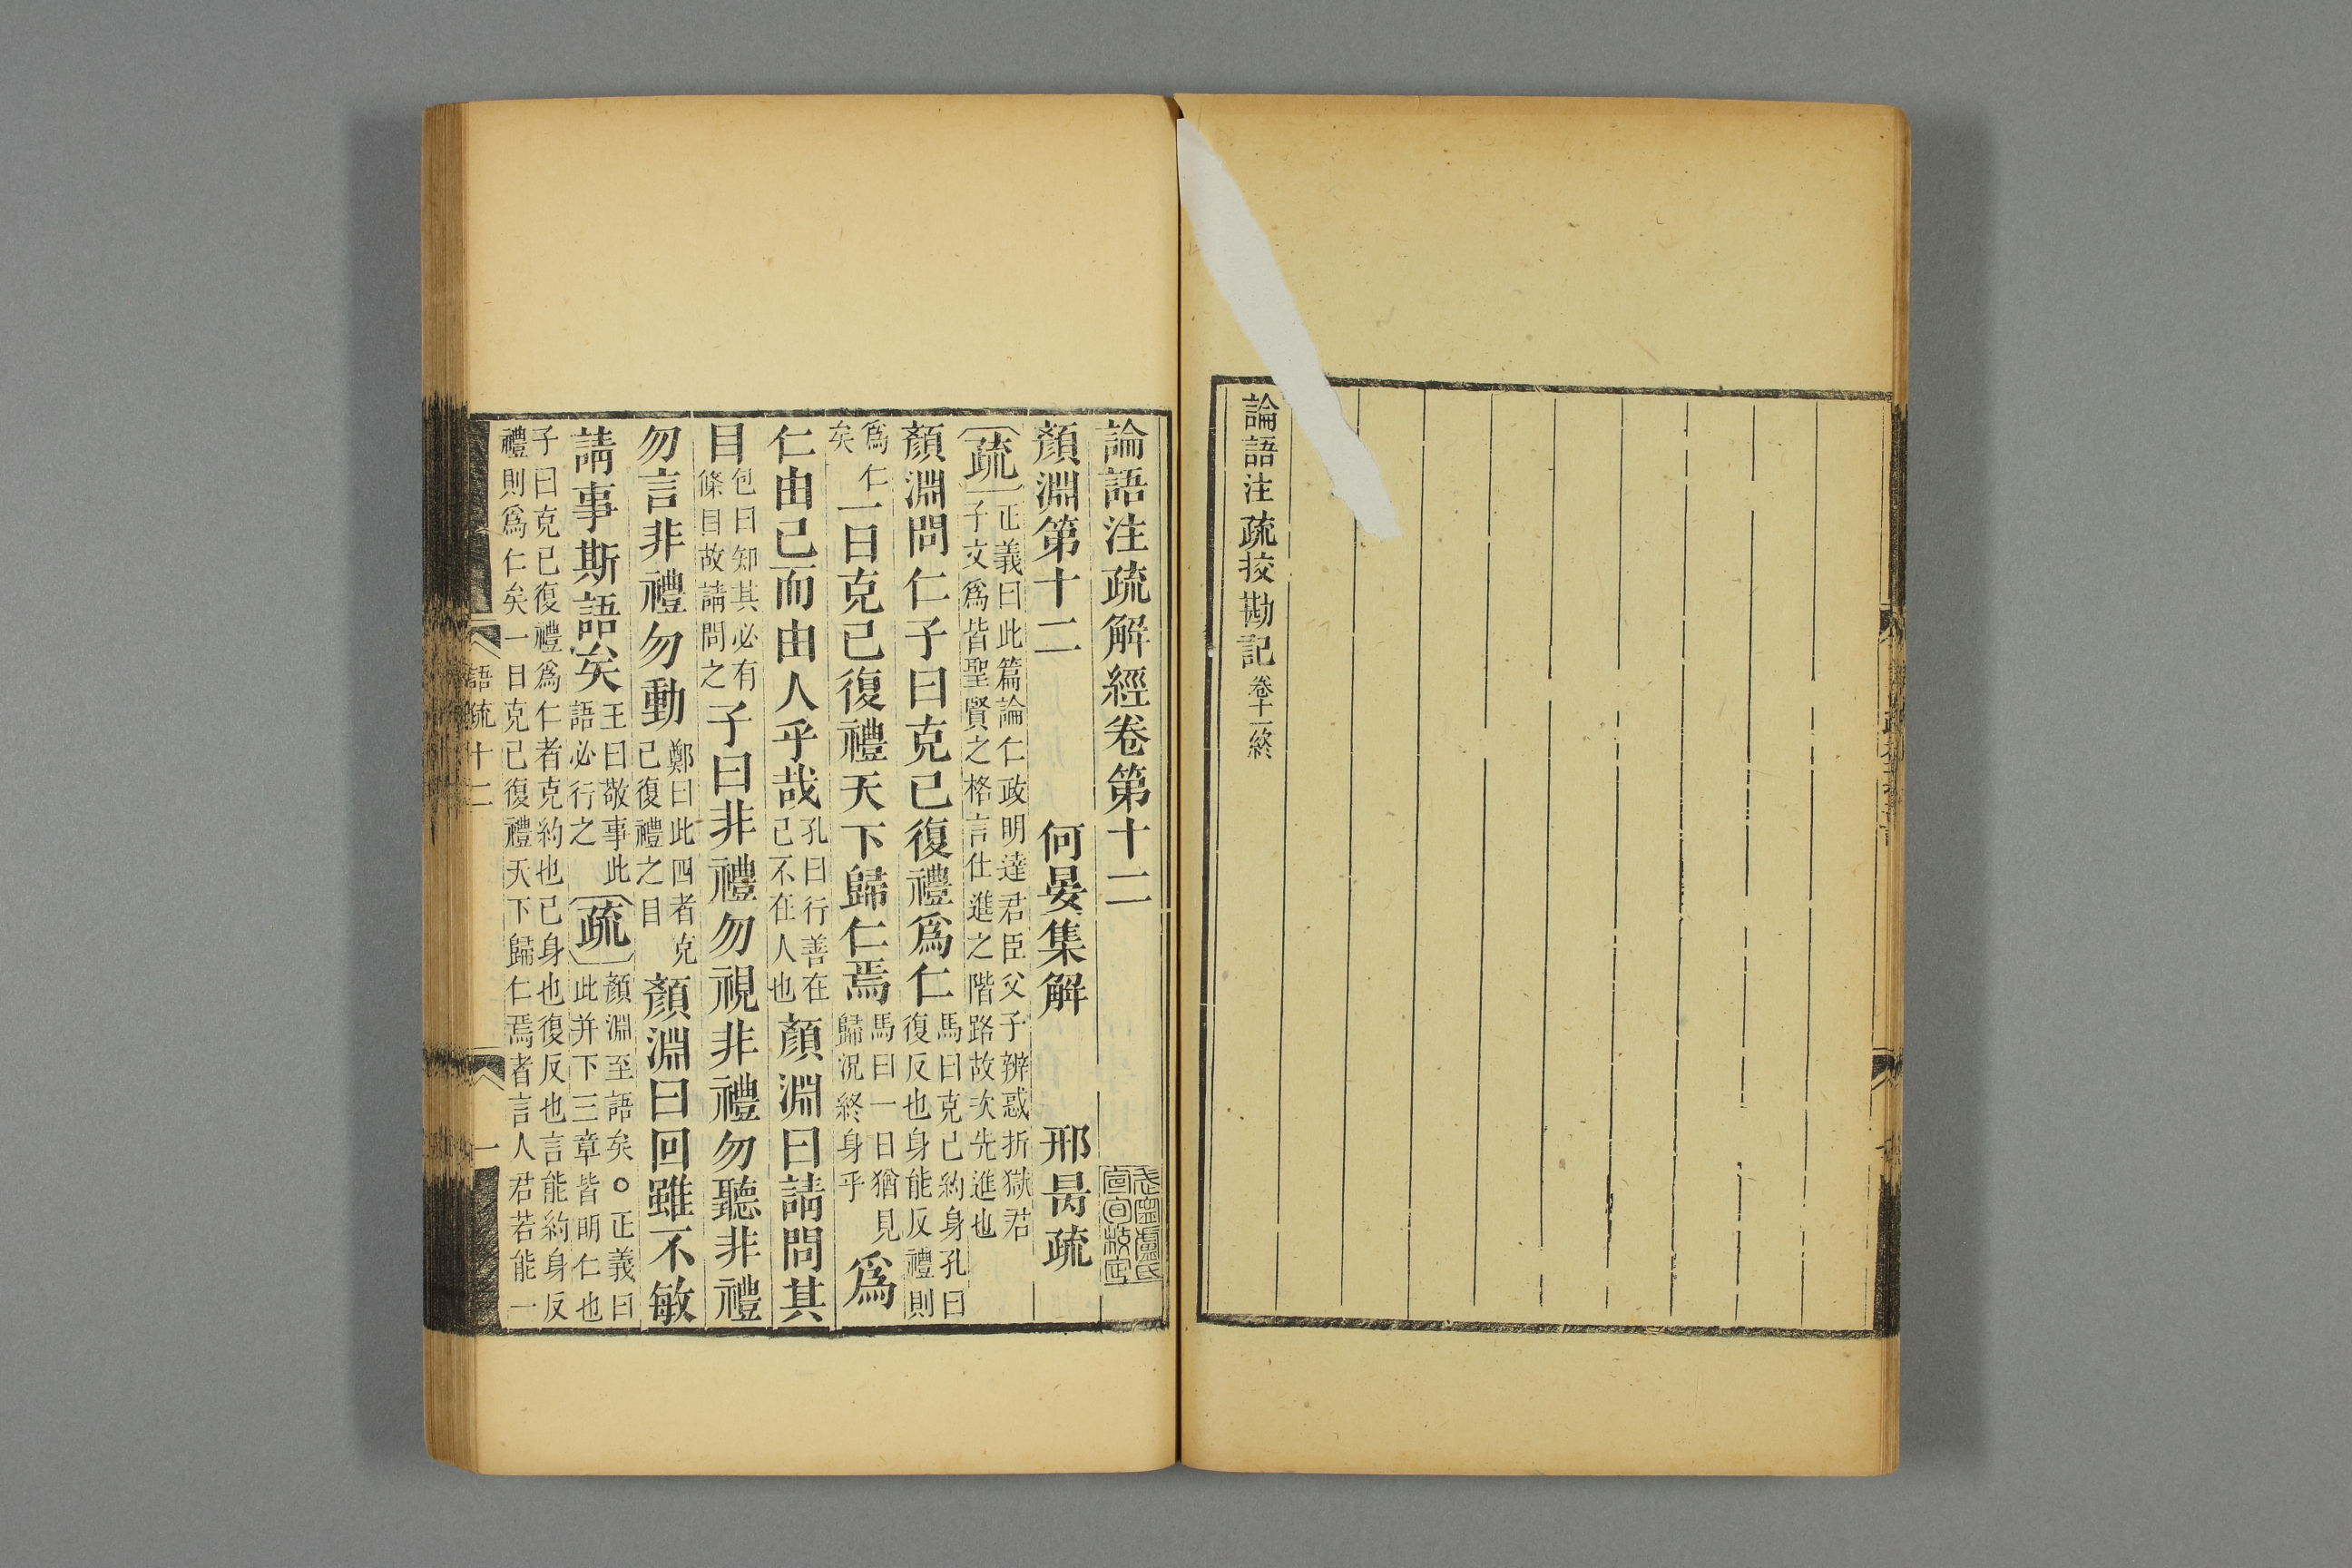 論語注疏挍勘記卷十一終
論語注疏解經卷第十二
武寧盧氏
宣旬校定
顏淵第十二 何晏集解 邢昺疏
疏 正義曰此篇論仁政明達君臣父子辨惑折獄君
子文爲皆聖賢之格言仕進之階路故次先進也
顏淵問仁子曰克己復禮爲仁 馬曰克己約身孔曰
復反也身能反禮則
爲仁
矣 一日克己復禮天下歸仁焉 馬曰一日猶見
歸況終身乎 爲
仁由己而由人乎哉 孔曰行善在
己不在人也 顏淵曰請問其
目 包曰知其必有
條目故請問之 子曰非禮勿視非禮勿聽非禮
勿言非禮勿動 鄭曰此四者克
己復禮之目 顏淵曰回雖不敏
請事斯語矣 王曰敬事此
語必行之 疏 顏淵至語矣○正義曰
此并下三章皆明仁也
子曰克己復禮爲仁者克約也己身也復反也言能約身反
禮則爲仁矣一日克己復禮天下歸仁焉者言人君若能一
語疏十二 一